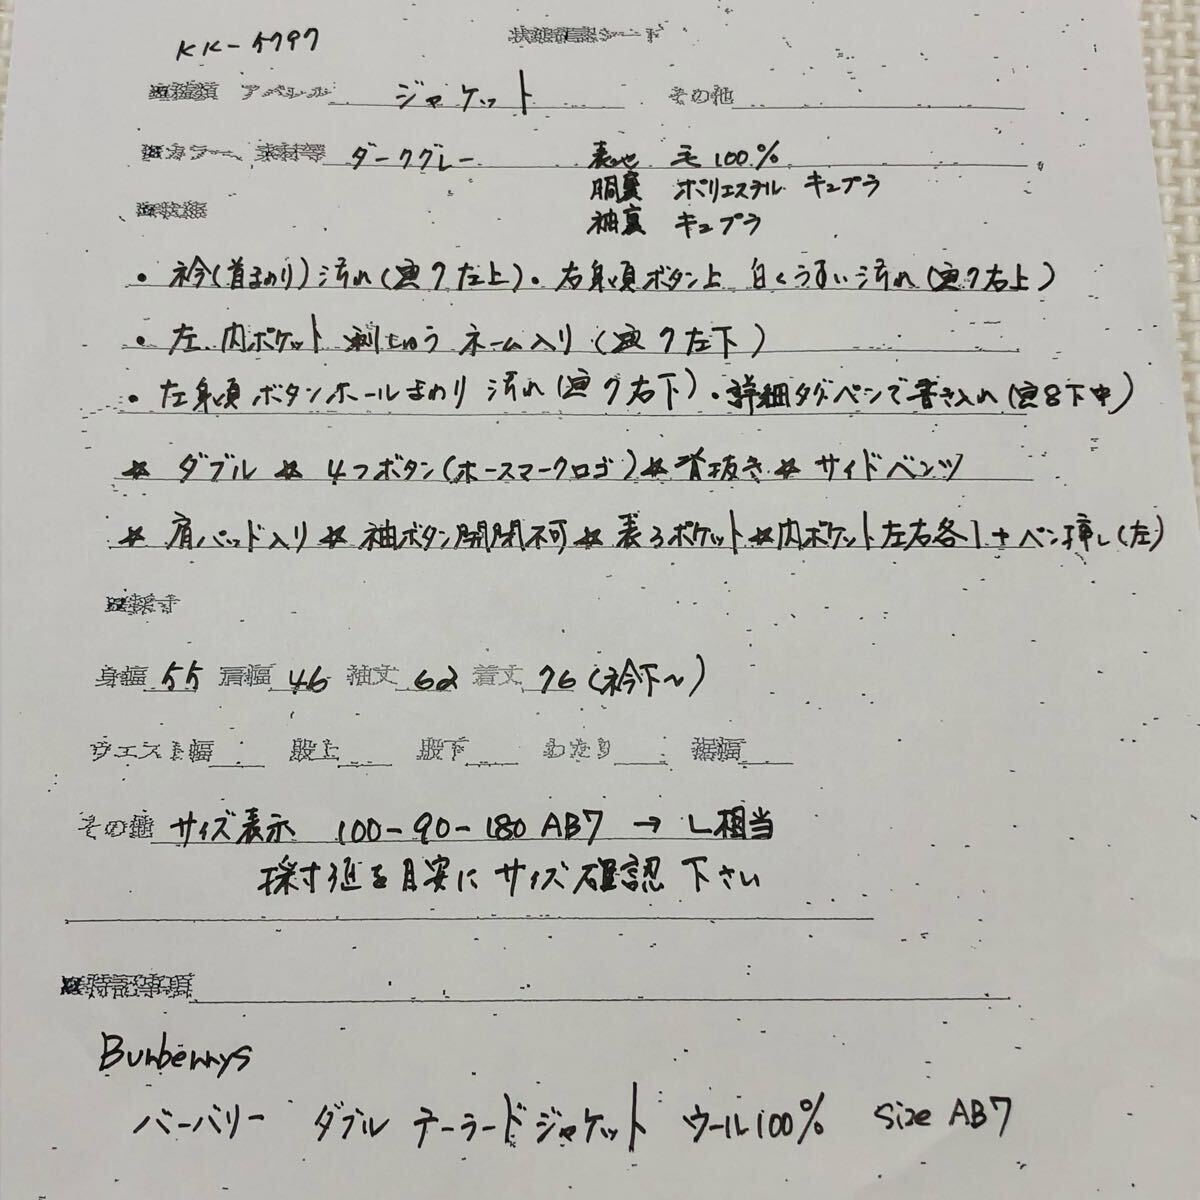 KK-5797
状態確認シート
■種類 アパレル ジャケット その他
■カラー、素材等 ダークグレー 表地 毛100%
胴裏 ポリエステル キュプラ
袖裏 キュプラ
■状態
・衿(首まわり)汚れ(画7左上)・右身頃ボタン上 白くうすい汚れ(画7右上)
・左内ポケット 刺しゅう ネーム入り(画7左下)
・左身頃ボタンホールまわり 汚れ(画7右下)・詳細タグペンで書き入れ(画8下中)
☆ ダブル ☆ 4つボタン(ホースマークロゴ)☆背抜き☆サイドベンツ
☆ 肩パッド入り☆袖ボタン開閉不可☆表3ポケット☆内ポケット左右各1+ペン挿し(左)
■採寸
身幅 55 肩幅 46 袖丈 62 着丈 76(衿下~)
ウエスト幅 股上 股下 わたり 裾幅
その他 サイズ表示 100-90-180 AB7 → L相当
採寸値を目安にサイズ確認下さい
■特記事項
Burberrys
バーバリー ダブル テーラードジャケット ウール100% Size AB7